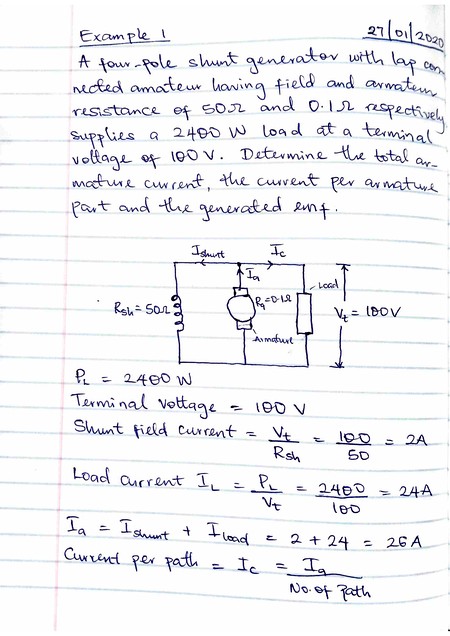 Example 1 27/01/2020
A four-pole shunt generator with lap con
nected amateur having field and armateur
resistance of 50Ω and 0.1Ω respectively
supplies a 2400 W load at a terminal
voltage of 100 V. Determine the total ar-
mature current, the current per armature
part and the generated emf.
Ishunt Ic
Ia
Load
Rsh = 50Ω Ra=0.1Ω Vt = 100V
Armature
PL = 2400 W
Terminal voltage = 100 V
Shunt field current = Vt/Rsh = 100/50 = 2A
Load current IL = PL/Vt = 2400/100 = 24A
Ia = Ishunt + Iload = 2 + 24 = 26A
Current per path = Ic = Ia/No. of Path